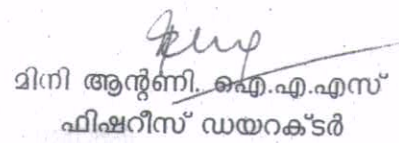 മിനി ആന്റണി. ഐ.എ.എസ്
ഫിഷറീസ് ഡയറക്ടർ